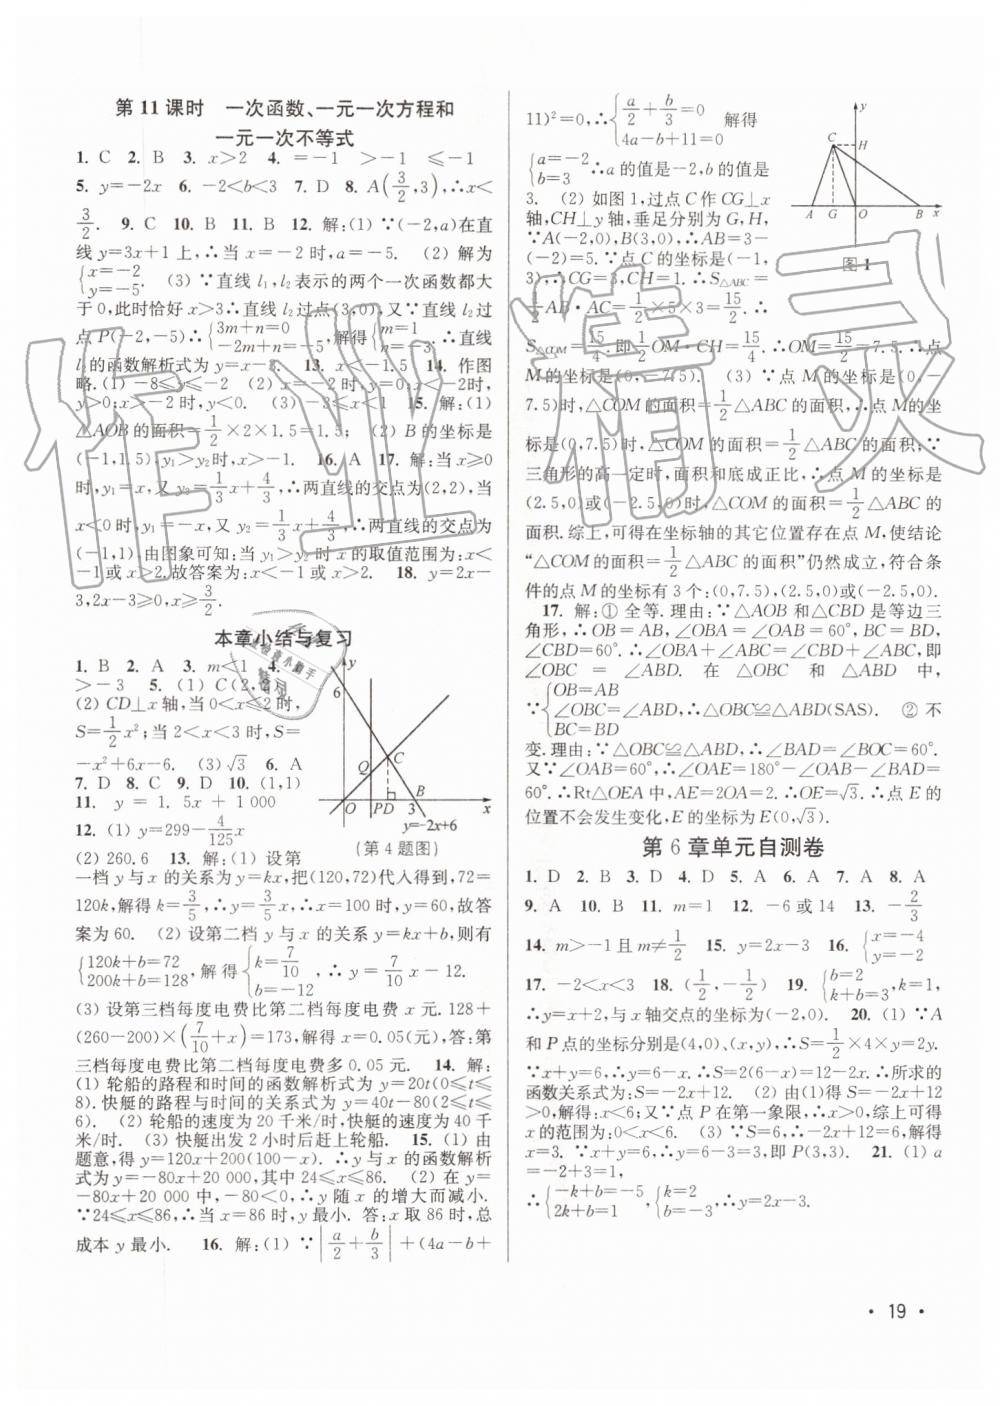 第 11 课时　一次函数、一元一次方程和
一元一次不等式
1. C　2. B　3. x>2　4. =-1　>-1　⩽-1
5. y=-2x　6. -2<b<3　7. D　8. A(3/2,3),∴x<
3/2.　9. C　10. B　11. B　12. 解:(1) ∵(-2,a)在直
线 y=3x+1 上,∴当 x=-2 时,a=-5.　(2) 解为
{x=-2 y=-5.　(3) ∵直线 l₁,l₂表示的两个一次函数都大
于 0,此时恰好 x>3∴直线 l₂过点(3,0),又∵直线 l₂过
点 P(-2,-5)∴{3m+n=0 -2m+n=-5,解得{m=1 ∴直线
l₂的函数解析式为 y=x-3.　13. x<-1.5　14. 作图
略.(1) -8⩽y⩽-2　(2) x=-2 时,y=0;x<-2时,
y>0;x>-2 时,y<0.　(3) -3⩽x⩽1　15. 解:(1)
△AOB 的面积=1/2×2×1.5=1.5;　(2) B 的坐标是
(-1,1.5),y₁>y₂时,x<-1.　16. A　17. 解:当 x⩾0
时,y₁=x,又 y₂=1/3x+4/3,∴两直线的交点为(2,2),当
x<0 时,y₁=-x,又 y₂=1/3x+4/3,∴两直线的交点为
(-1,1),由图象可知:当 y₁>y₂时 x 的取值范围为:x<
-1 或 x>2.故答案为:x<-1 或 x>2.　18. y=2x-
3,2x-3⩾0,x⩾3/2.
本章小结与复习
1. B　2. A　3. m<1　4.
>-3　5. (1) C(2,2)
(2) CD⊥x 轴,当 0<x⩽2 时,
S=1/2x²;当 2<x<3 时,S=
-x²+6x-6.　(3) √3　6. A
7. D　8. C　9. D　10. (1,1)
11. y = 1. 5x + 1 000
12. (1) y=299-4/125x
(2) 260.6　13. 解:(1) 设第
y
6
C
Q
B
O
P
D
3
x
y=-2x+6
(第 4 题图)
一档 y 与 x 的关系为 y=kx,把(120,72)代入得到,72=
120k,解得 k=3/5,∴y=3/5x,∴x=100 时,y=60,故答
案为 60.　(2) 设第二档 y 与 x 的关系 y=kx+b,则有
{120k+b=72 200k+b=128,解得{k=7/10 b=-12,∴y=7/10x-12.
(3) 设第三档每度电费比第二档每度电费 x 元.128+
(260-200)×(7/10+x)=173,解得 x=0.05(元),答:第
三档每度电费比第二档每度电费多 0.05 元.　14. 解:
(1) 轮船的路程和时间的函数解析式为 y=20t(0⩽t⩽
8).快艇的路程与时间的关系式为 y=40t-80(2⩽t⩽
6).　(2) 轮船的速度为 20 千米/时,快艇的速度为 40 千
米/时.　(3) 快艇出发 2 小时后赶上轮船.　15. (1) 由
题意,得 y=120x+200(100-x).∴y与 x 的函数解析
式为 y=-80x+20 000,其中 24⩽x⩽86.　(2) 在 y=
-80x+20 000 中,-80<0,∴y 随 x 的增大而减小.
∵24⩽x⩽86,∴当 x=86 时,y 最小. 答:x 取 86 时,总
成本 y 最小.　16. 解:(1) ∵|a/2+b/3|+(4a-b+
11)²=0,∴{a/2+b/3=0 4a-b+11=0 解得
{a=-2 b=3 ∴a 的值是-2,b 的值是
3.　(2) 如图 1,过点 C 作 CG⊥x
轴,CH⊥y 轴,垂足分别为 G,H,
∵A(-2,0),B(3,0),∴AB=3-
(-2)=5.∵点 C 的坐标是(-1,
3),∴CG=3,CH=1.∴S△ABC=
1/2AB·AC=1/2×5×3=15/2.∴
y
C
H
A
G
O
B
x
图 1
S△COM=15/4.即1/2OM·CH=15/4.∴OM=15/2=7.5.∴点
M 的坐标是(0,-7.5).　(3) ∵点 M 的坐标是(0,-
7.5)时,△COM 的面积=1/2△ABC 的面积,∴点 M 的坐
标是(0,7.5)时,△COM 的面积=1/2△ABC 的面积;∵
三角形的高一定时,面积和底成正比,∴点 M 的坐标是
(2.5,0)或(-2.5,0)时,△COM 的面积=1/2△ABC 的
面积.综上,可得在坐标轴的其它位置存在点 M,使结论
“△COM 的面积=1/2△ABC 的面积”仍然成立,符合条
件的点 M 的坐标有 3 个:(0,7.5),(2.5,0)或(-2.5,0).
17. 解:① 全等. 理由:∵△AOB 和△CBD 是等边三
角形,∴OB=AB,∠OBA=∠CBD=60°,BC=BD,
∠CBD=60°.∴∠OBA+∠ABC=∠CBD+∠ABC,即
∠OBC = ∠ABD. 在 △OBC 和 △ABD 中,
∵{OB=AB ∠OBC=∠ABD,∴△OBC≌△ABD(SAS). BC=BD　② 不
变.理由:∵△OBC≌△ABD,∴∠BAD=∠BOC=60°.
又∵∠OAB=60°,∴∠OAE=180°-∠OAB-∠BAD
=60°.∴Rt△OEA 中,AE=2OA=2.∴OE=√3.∴点 E 的
位置不会发生变化,E 的坐标为 E(0,√3).
第 6 章单元自测卷
1. D　2. B　3. D　4. D　5. A　6. A　7. A　8. A
9. A　10. B　11. m=1　12. -6 或 14　13. -2/3
14. m>-1 且 m≠1/2　15. y=2x-3　16. {x=-4 y=-2
17. -2<x<3　18. (1/2,-1/2)　19. {b=2 k+b=3,k=1,
∴y=x+2,与 x 轴交点的坐标为(-2,0).　20. (1) ∵A
和 P 点的坐标分别是(4,0)、(x,y),∴S=1/2×4×y=2y.
∵x+y=6,∴y=6-x.∴S=2(6-x)=12-2x.∴所求的
函数关系式为:S=-2x+12.　(2) 由(1)得 S=-2x+12
>0,解得:x<6;又∵点 P 在第一象限,∴x>0,综上可得
x 的范围为:0<x<6.　(3) ∵S=6,∴-2x+12=6,解得
x=3.∵x+y=6,∴y=6-3=3,即 P(3,3).　21. (1) a
=-2+3=1,
∴{-k+b=-5 2k+b=1,{k=2 b=-3,∴y=2x-3.
· 19 ·
作业精灵